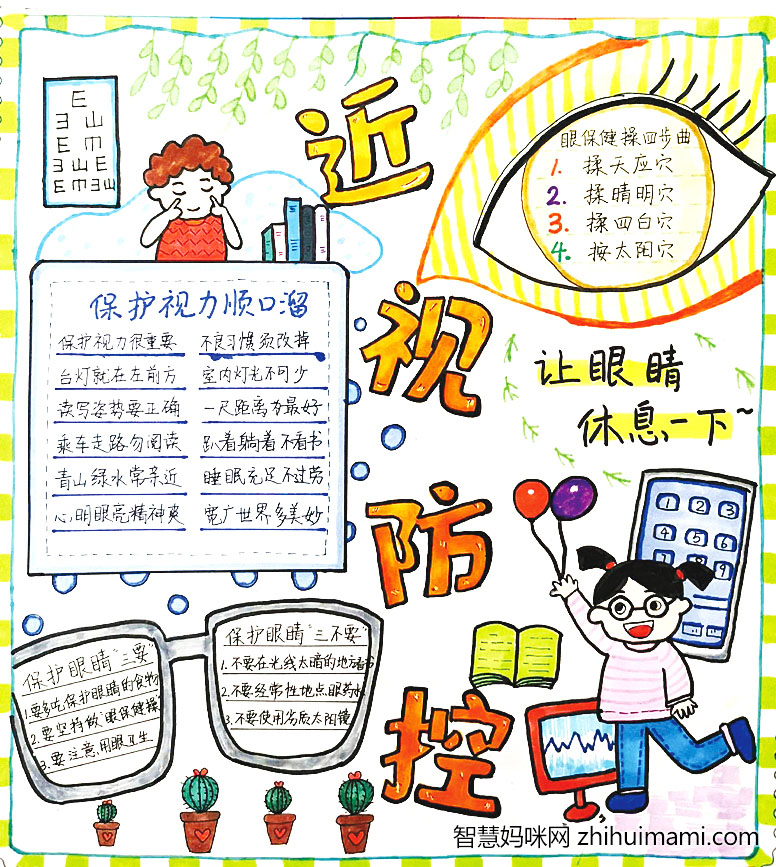 E
ヨ Ш
E m
ヨ Ш E
E m ヨ Ш
近
视
防
控
眼保健操四步曲
1. 揉天应穴
2. 揉晴明穴
3. 揉四白穴
4. 按太阳穴
保护视力顺口溜
保护视力很重要 不良习惯须改掉
台灯就在左前方 室内灯光不可少
读写姿势要正确 一尺距离为最好
乘车走路勿阅读 趴着躺着不看书
青山绿水常亲近 睡眠充足不过劳
心明眼亮精神爽 宽广世界多美妙
让眼睛
休息一下~
1 2 3
4 5 6
7 8 9
0
保护眼睛"三要"
1.要多吃保护眼睛的食物
2.要坚持做"眼保健操"
3.要注意用眼卫生
保护眼睛"三不要"
1.不要在光线太暗的地方看书
2.不要经常性地点眼药水
3.不要使用劣质太阳镜
智慧妈咪网 zhihuimami.com